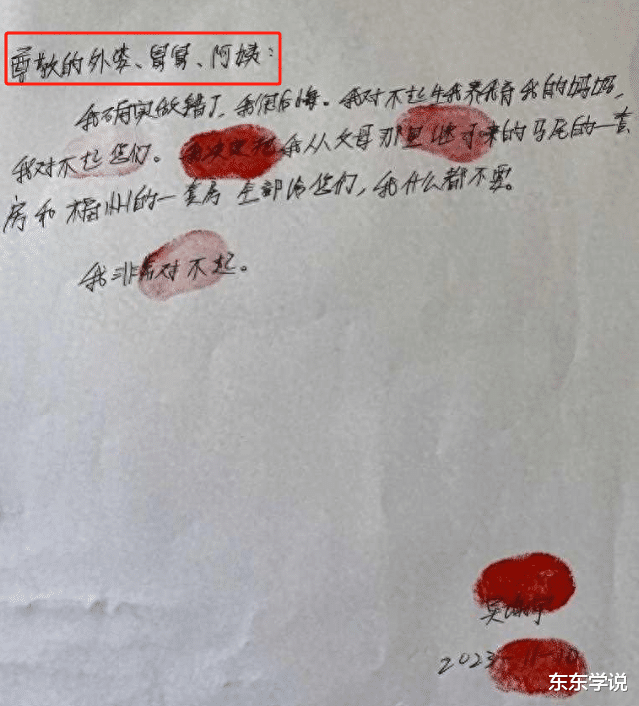 尊敬的外婆、舅舅、阿姨：
我确实做错了，我很后悔。我对不起生我养我育我的妈妈，
我对不起您们。我决定把我从父母那里继承来的马尾的一套
房和福州的一套房全部给您们，我什么都不要。
我非常对不起。
吴谢宇
2023-11-
东东学说